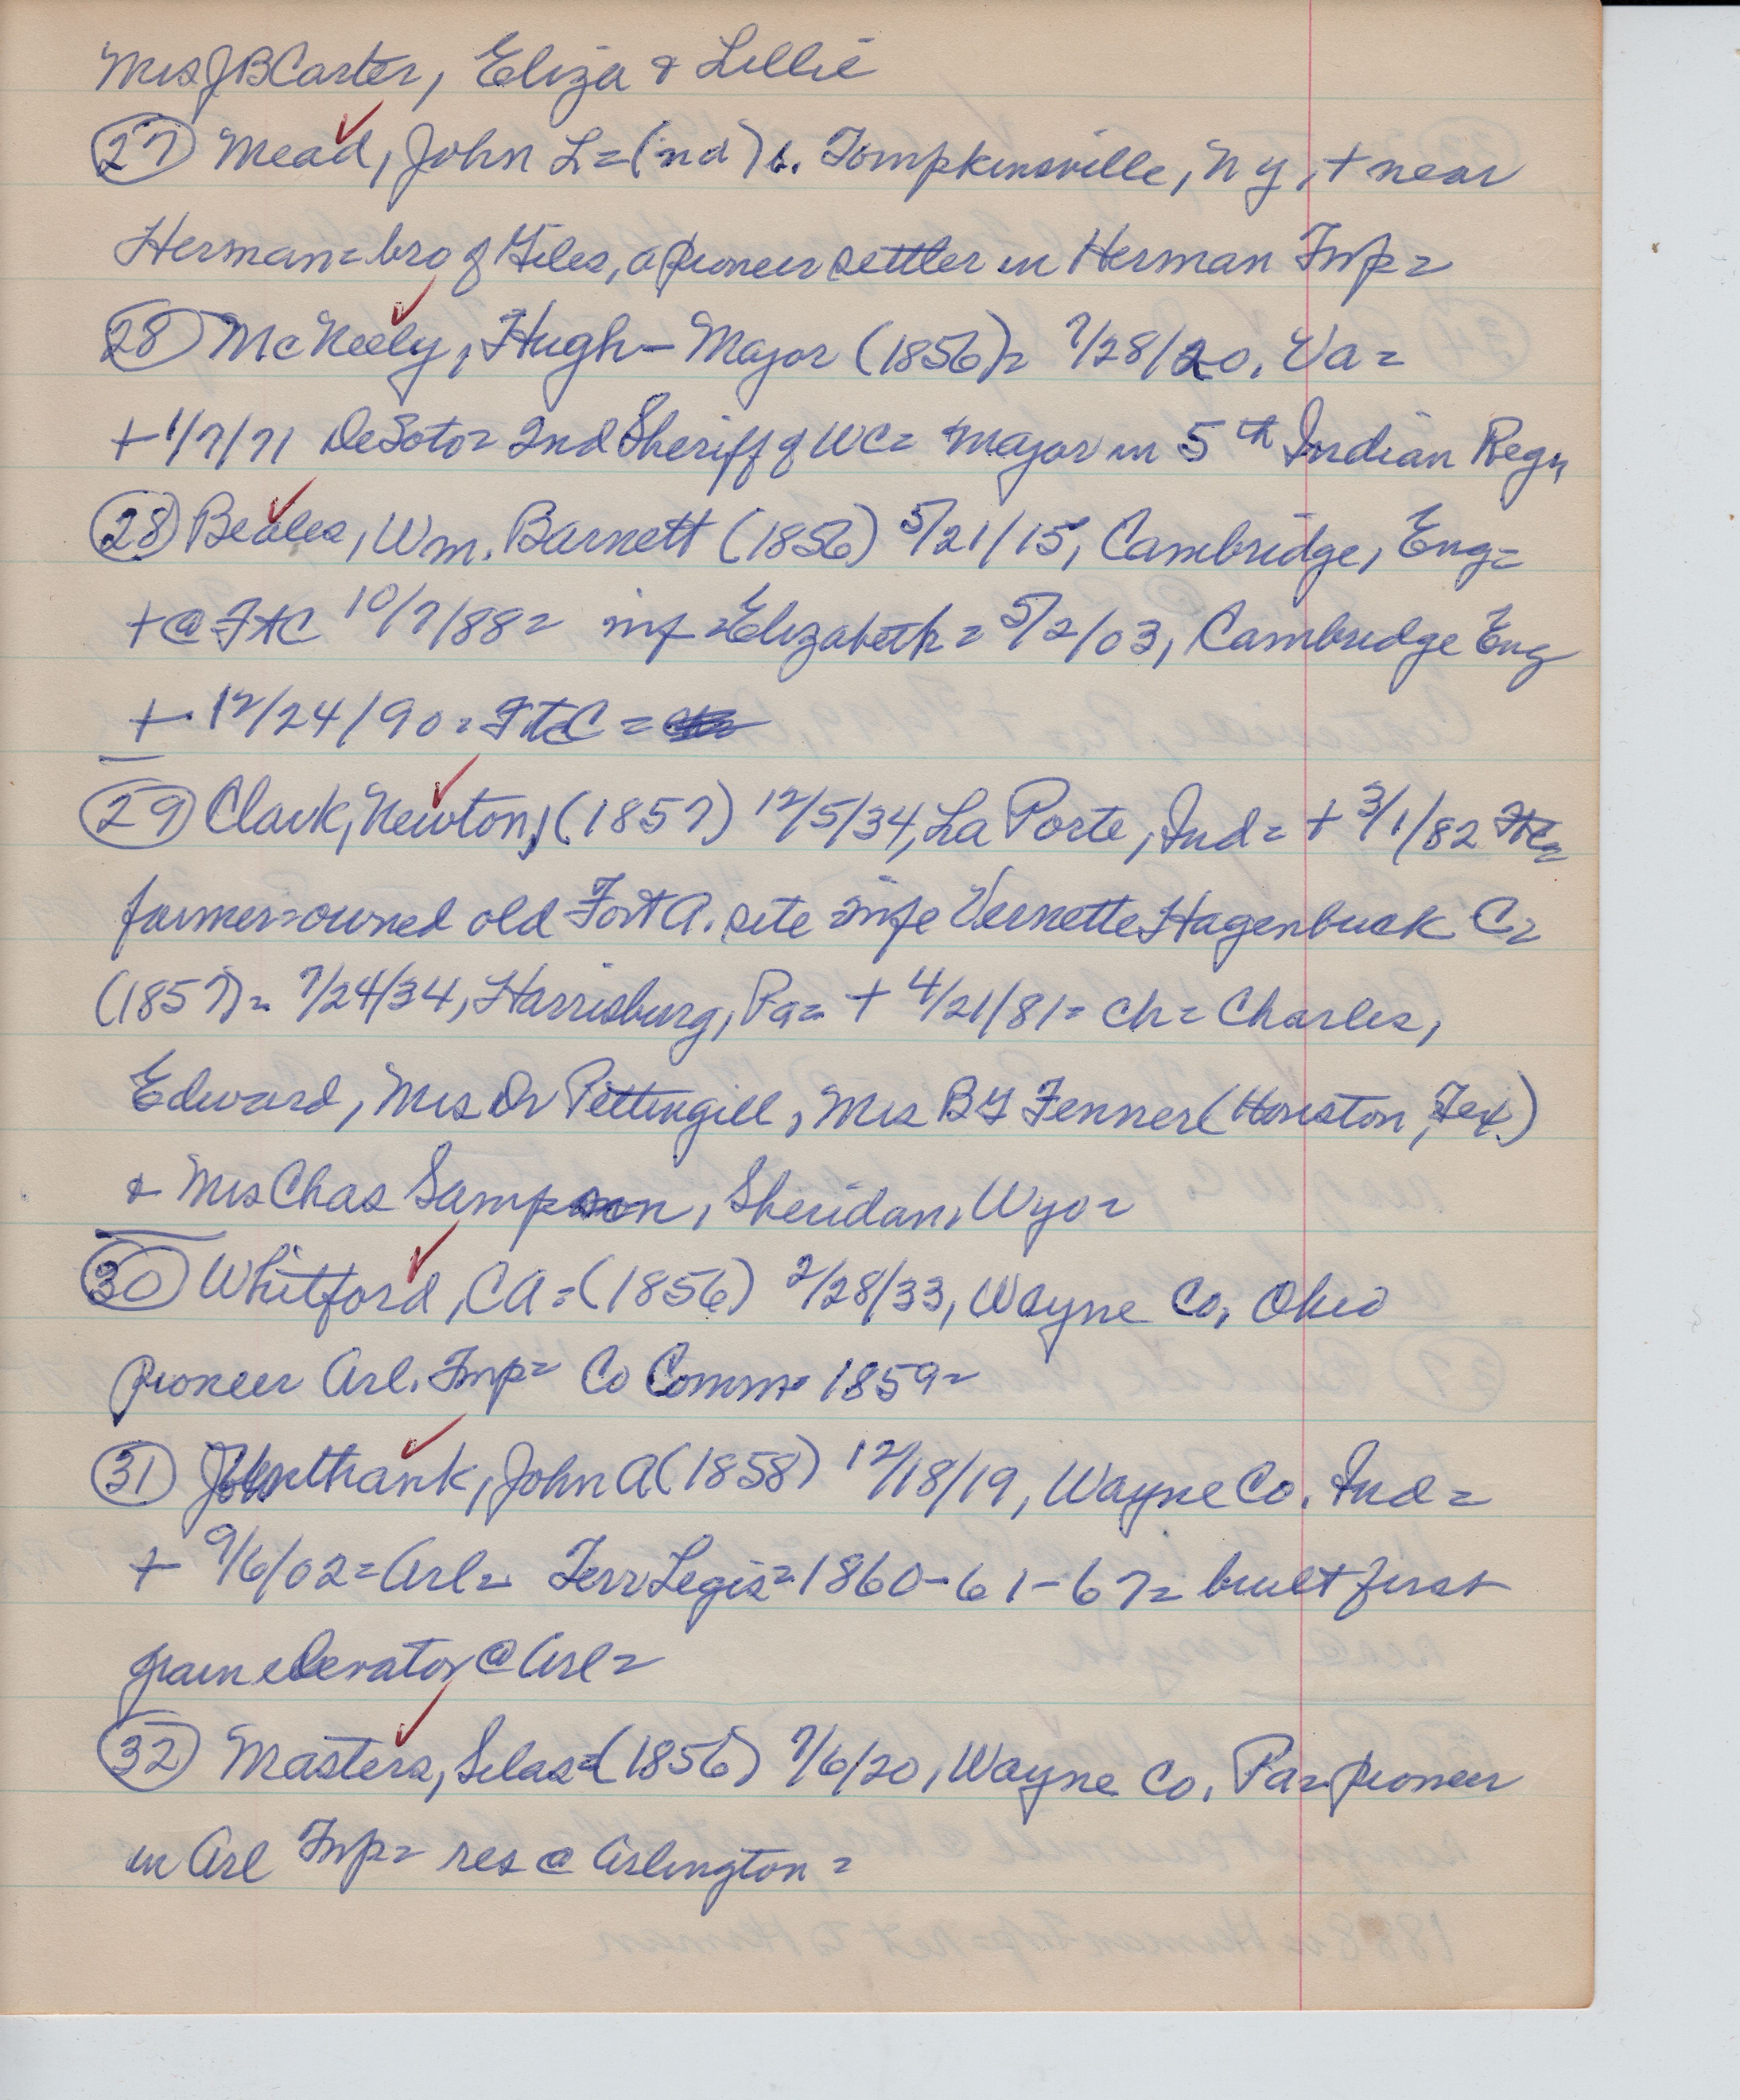 Mrs J B Carter, Eliza & Lillie
27 Mead, John L = (nd) b. Tompkinsville, N Y, + near
Herman = bro of Giles, a pioneer settler in Herman Twp =
28 McNeely, Hugh - Major (1856) = 7/28/20, Va =
+ 1/7/71 DeSoto = 2nd Sheriff of WC = Major in 5th Indian Reg,
28 Beales, Wm. Barnett (1856) 5/21/15, Cambridge, Eng =
+ @ FtC 10/7/88 = wife = Elizabeth = 5/2/03, Cambridge Eng
+ 12/24/90 = FtC =
29 Clark, Newton, (1857) 12/5/34, La Porte, Ind = + 3/1/82
farmer = owned old Fort A. site = wife Vernette Hagenbuck C =
(1857) = 7/24/34, Harrisburg, Pa = + 4/21/81 = ch = Charles,
Edward, Mrs Dr Pettingill, Mrs B F Fenner (Houston, Tex.)
& Mrs Chas Sampson, Sheridan, Wyo =
30 Whitford, CA = (1856) 2/28/33, Wayne Co, Ohio
Pioneer Arl. Twp = Co Comm = 1859 =
31 Unthank, John A (1858) 12/18/19, Wayne Co. Ind =
+ 9/6/02 = Arl = Terr Legis = 1860-61-67 = built first
grain elevator @ Arl =
32 Masters, Silas = (1856) 7/6/20, Wayne Co, Pa = pioneer
in Arl Twp = res @ Arlington =